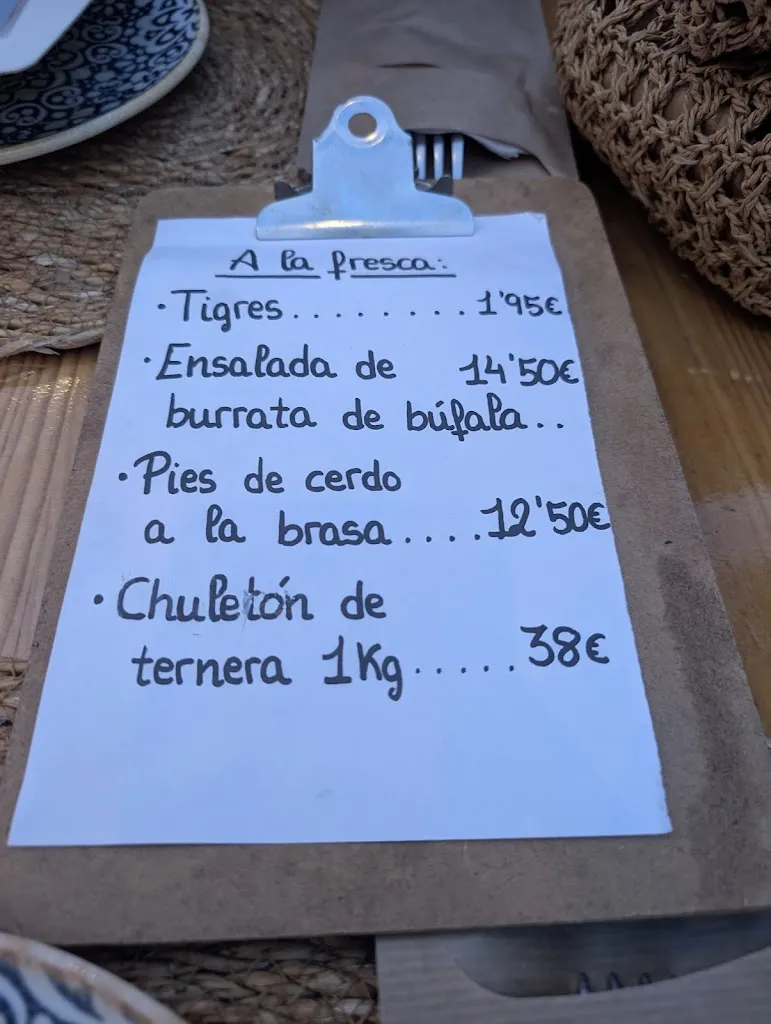 A la fresca:
· Tigres......... 1'95€
· Ensalada de 14'50€
burrata de búfala..
· Pies de cerdo
a la brasa.... 12'50€
· Chuletón de
ternera 1Kg..... 38€